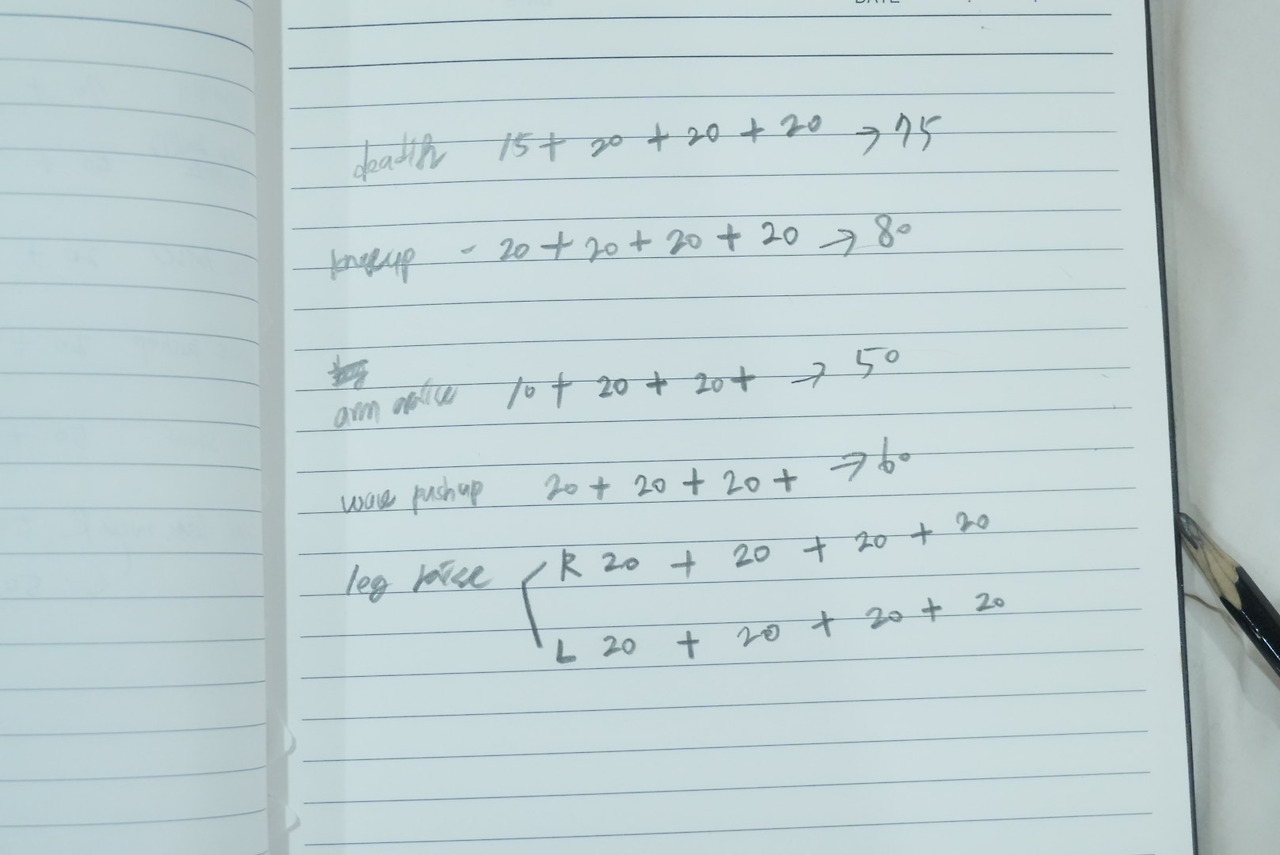 DATE
15 + 20 + 20 + 20 → 75
kneeup - 20 + 20 + 20 + 20 → 80
arm 10 + 20 + 20 + → 50
wave pushup 20 + 20 + 20 + → 60
leg raise R 20 + 20 + 20 + 20
L 20 + 20 + 20 + 20